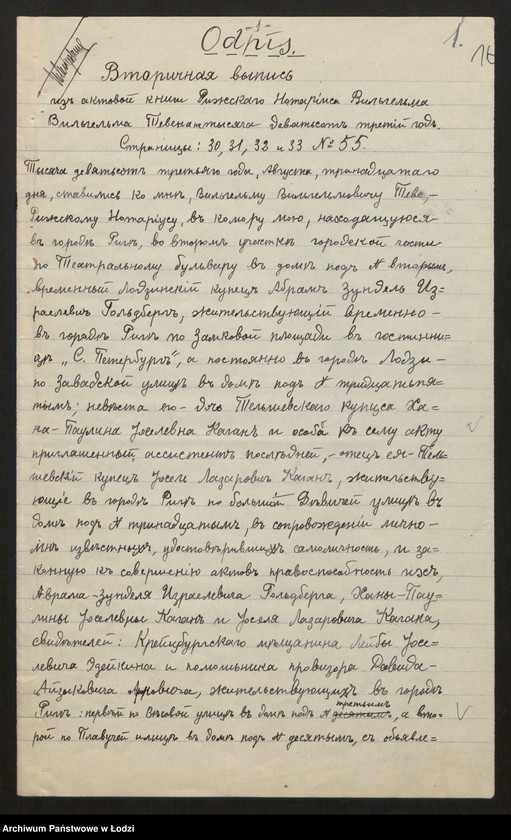 -1-
Odpis.
1.
16
Вторичная выпись
изъ актовой книги Рижскаго Нотарiуса Вильгельма
Вильгельма Теве на тысяча девятьсотъ третiй годъ.
Страницы: 30, 31, 32 и 33 № 55.
Тысяча девятьсотъ третьяго года, Августа, тринадцатаго
дня, явились ко мнѣ, Вильгельму Вильгельмовичу Теве,-
Рижскому Нотарiусу, въ контору мою, находящуюся
въ городѣ Ригѣ, во второмъ участкѣ городской части
по Театральному бульвару въ домѣ подъ № вторымъ,
временный Лодзинскiй купецъ Абрамъ Зундель Из-
раелевичъ Гольдбергъ, жительствующiй временно-
въ городѣ Ригѣ по Замковой площади въ гостинни-
цѣ „С. Петербургъ", а постоянно въ городѣ Лодзи-
по Завадской улицѣ въ домѣ подъ № тридцать пя-
тымъ; невѣста его - дочь Тельшевскаго купца Ха-
на-Паулина Іоселевна Каганъ и особа къ сему акту
приглашенный ассистентъ послѣдней,-отецъ ея-Тель=
шевскiй купецъ Іосель Лазаровичъ Каганъ, жительству=
ющiе въ городѣ Ригѣ по большой Дѣвичей улицѣ въ
домѣ подъ № тринадцатымъ, въ сопровожденiи лично-
мнѣ извѣстныхъ, удостовѣрившихъ самоличность, и за-
конную къ совершенiю актовъ правоспособность ихъ,
Абрама-Зунделя Израелевича Гольдберга, Ханы-Пау-
лины Іоселевны Каганъ и Іоселя Лазаровича Кагана,
свидѣтелей: Крейцбургскаго мѣщанина Лейбы Іосе=
левича Эдейкина и помощника провизора Давида-
Айзиковича, жительствующихъ въ городѣ
третьимъ
Ригѣ: первый по Вѣсовой улицѣ въ домѣ подъ № десятымъ, а вто=
рой по Плавучей улицѣ въ домѣ подъ № десятымъ, съ объявле=
Archiwum Państwowe w Łodzi